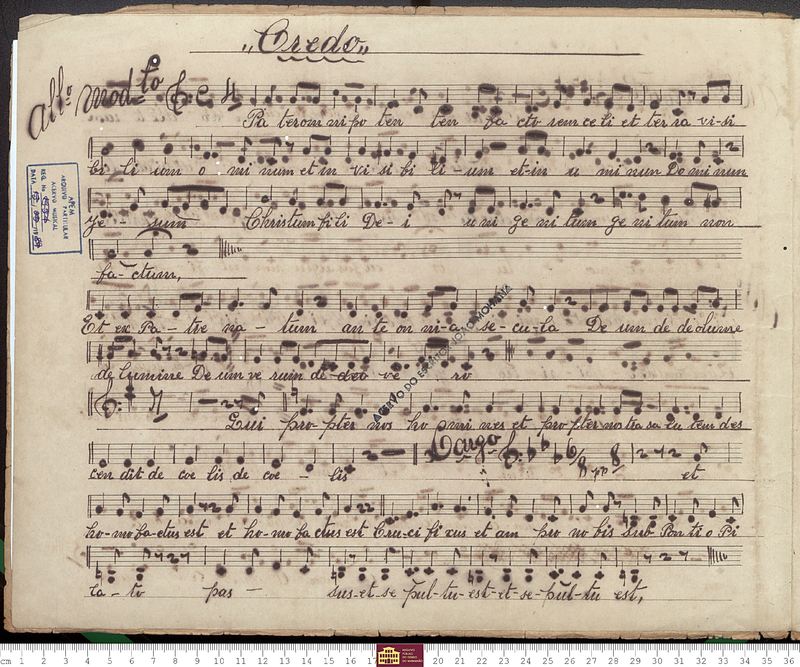 „Credo„
All.o mod.to
Pa terom ni po ten ten fa cto rem ce li et ter ra vi-si
bi li um o mi num et in vi si bi li-um et-in u mi nun Do mi nun
Ye-sum Christum fi li De-i u ni ge ni tum ge ni tum non
fa-ctum,
Et ex Pa-tre na-tum an te om ni-a se-cu-la De um de de olumme
de lumine De um ve rum de-deo ve ro
Qui pro-pter nos ho mi nes et pro pter nostra sa lu tem des
cen dit de coe lis de coe-lis Largo pp et
ho-mo factus est et ho-mo factus est Cru-ci fi xus et am pro no bis Sub Pon ti o Pi
la-to pas-sus-et-se pul-tu-est-et-se-pul-tu est,
APEM
ARQUIVO PARTICULAR
ACERVO MUSICAL
REG. No
DATA
ACERVO DO ESCRITOR JOMAR MORAES
cm 1 2 3 4 5 6 7 8 9 10 11 12 13 14 15 16 17 20 21 22 23 24 25 26 27 28 29 30 31 32 33 34 35 36